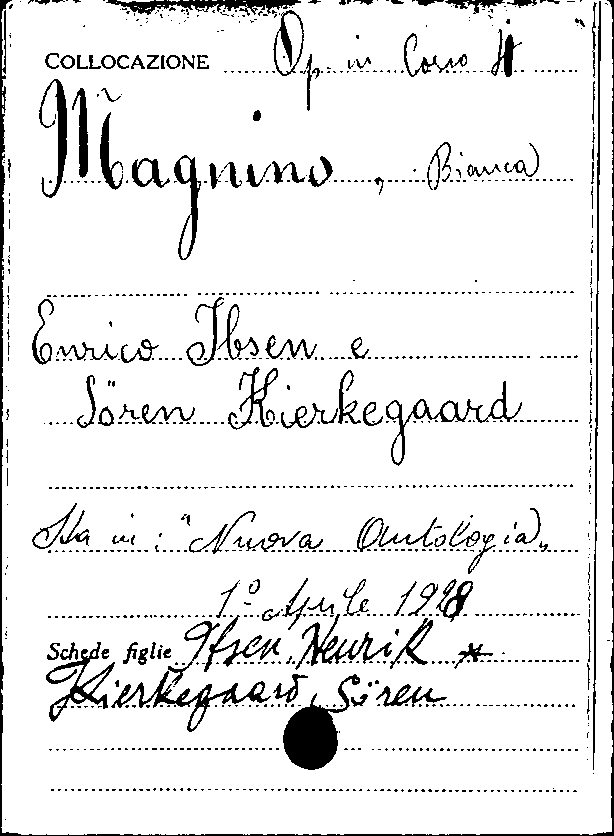 COLLOCAZIONE Op. in Corso
Magnino, Bianca
Enrico Ibsen e
Sören Kierkegaard
Sta in: "Nuova Antologia„
1° Aprile 1928
Schede figlie Ibsen, Henrik *
Kierkegaard, Sören